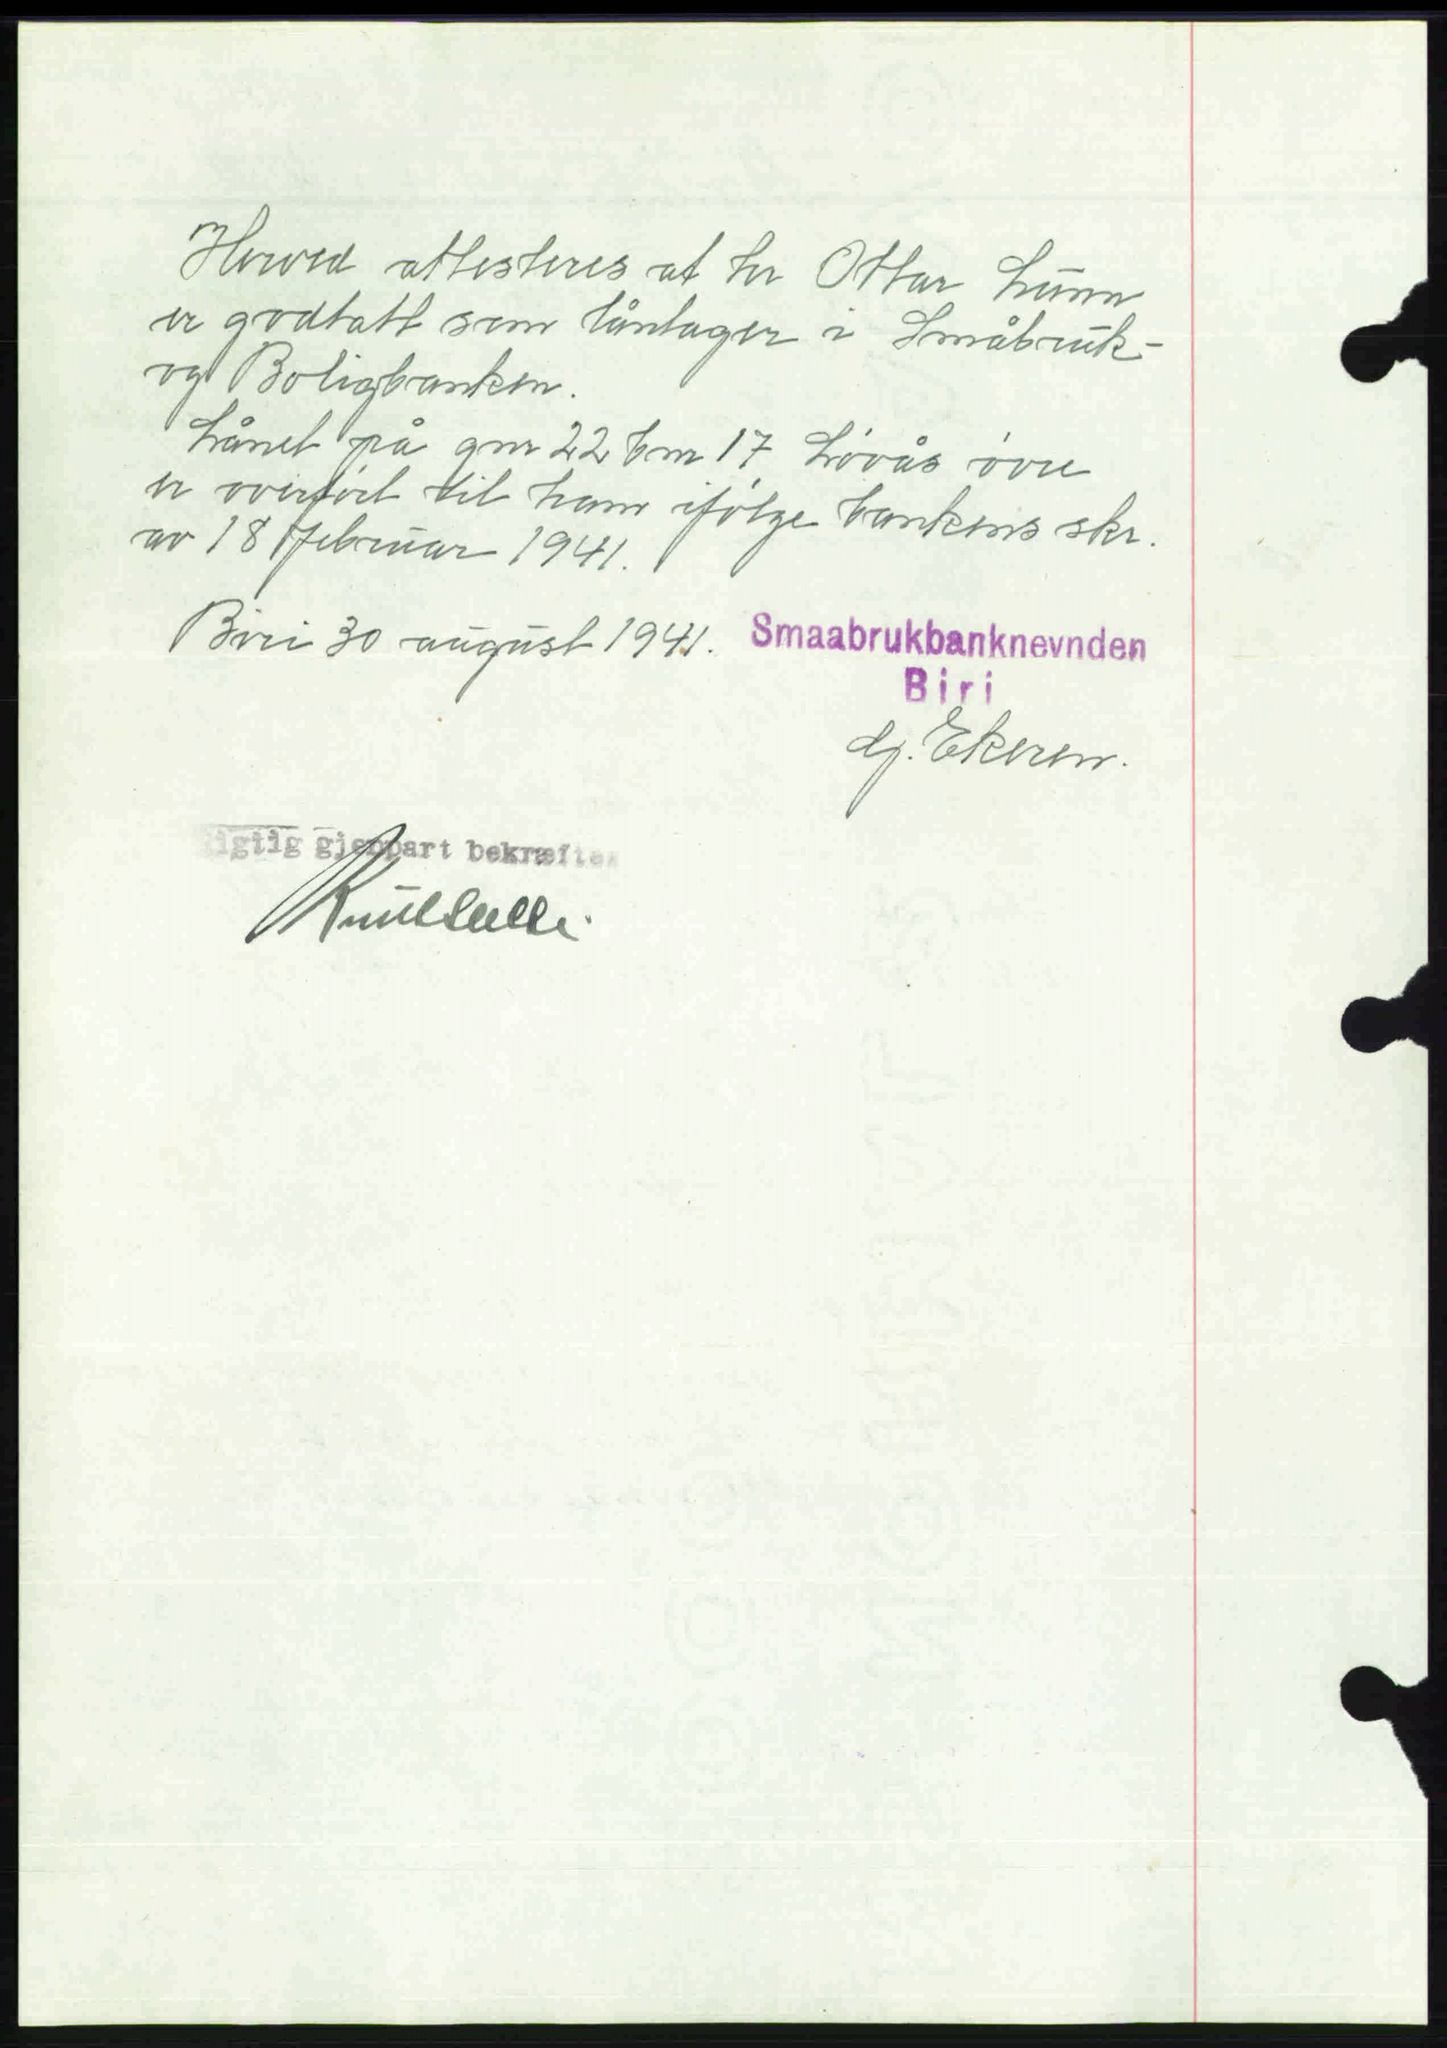 Herved attesteres at hr Ottar Lunn
er godtatt som låntager i Småbruk-
og Boligbanken.
Lånet på gnr 22 bnr 17 Lövås övre
er overfört til ham ifölge bankens skr.
av 18 februar 1941.
Biri 30 august 1941.
Smaabrukbanknevnden
Biri
Ekeren.
Rigtig gjenpart bekræftes